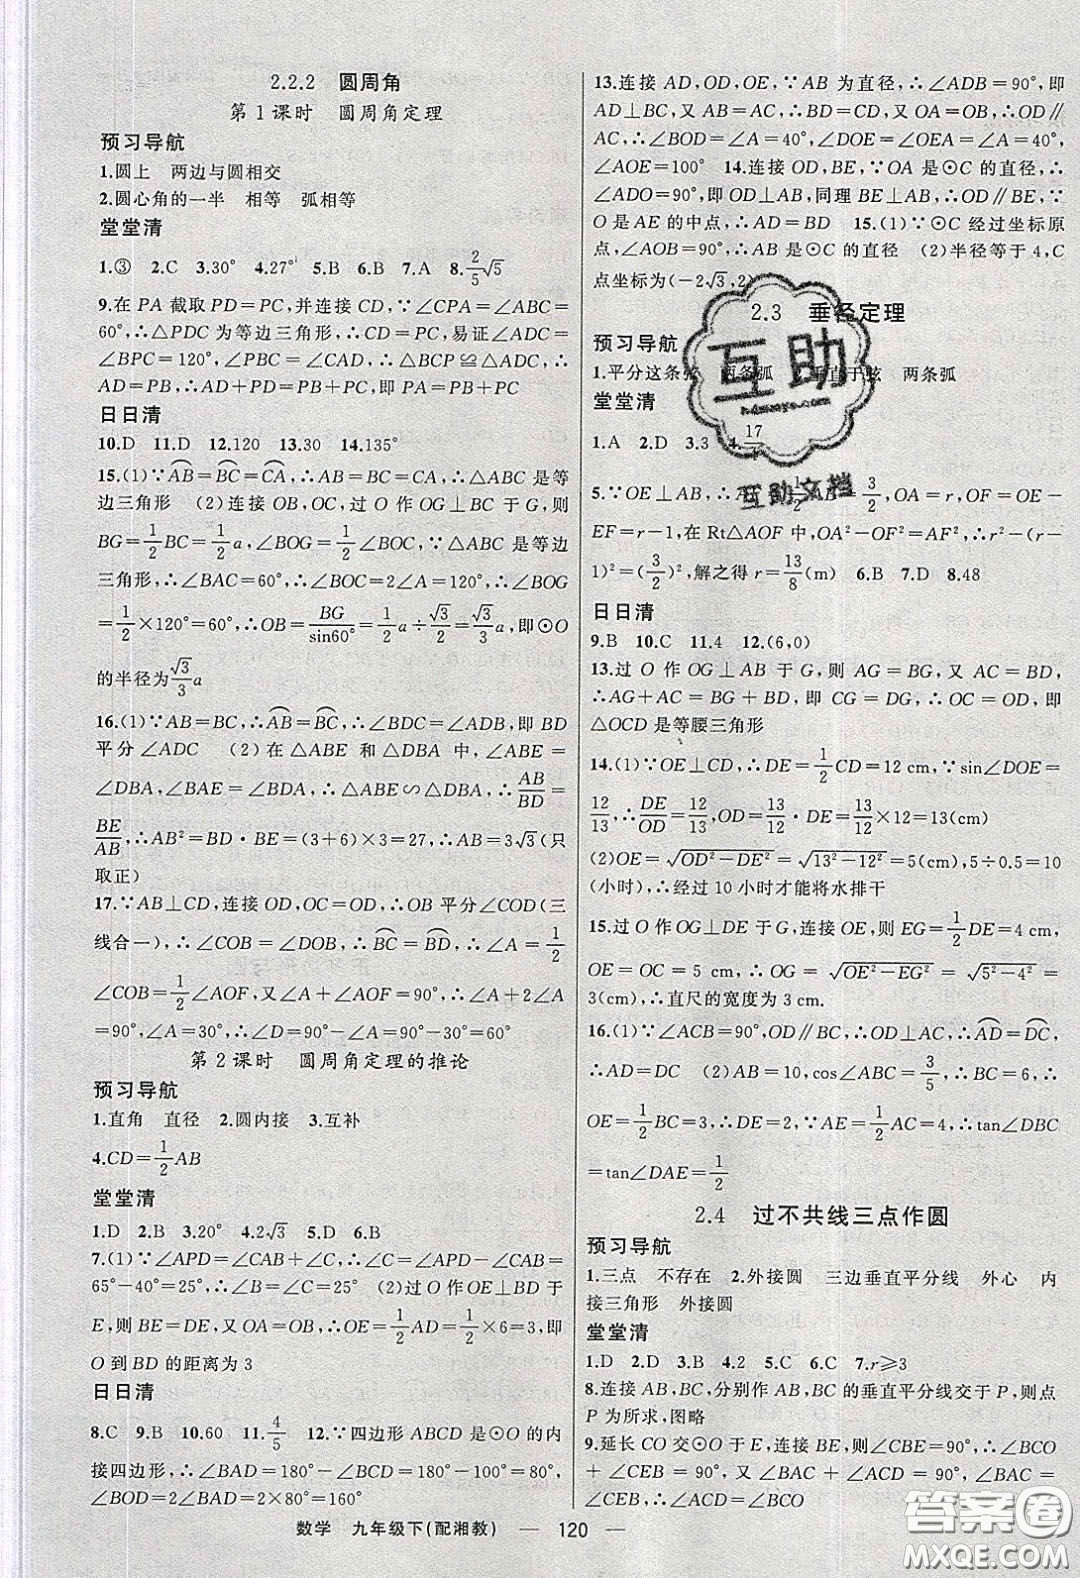 2.2.2 圆周角
第1课时 圆周角定理
预习导航
1.圆上 两边与圆相交
2.圆心角的一半 相等 弧相等
堂堂清
1.③ 2.C 3.30° 4.27° 5.B 6.B 7.A 8.2/5√5
9.在 PA 截取 PD=PC,并连接 CD,∵∠CPA=∠ABC=
60°,∴△PDC 为等边三角形,∴CD=PC,易证∠ADC=
∠BPC=120°,∠PBC=∠CAD,∴△BCP≌△ACD,∴
AD=PB,∴PA=AD+PD=PB+PC
日日清
10.D 11.D 12.120 13.30 14.135°
15.(1)∵⌒AB=⌒BC=⌒CA,∴AB=BC=CA,∴△ABC 是等
边三角形 (2)连接 OB,OC,过 O 作 OG⊥BC 于 G,则
BG=1/2BC=1/2a,∠BOG=1/2∠BOC,∵△ABC 是等边
三角形,∴∠BAC=60°,∴∠BOC=2∠A=120°,∴∠BOG
=1/2×120°=60°,∴OB=BG/sin60°=1/2a÷√3/2=√3/3a,即⊙O
的半径为√3/3a
16.(1)∵AB=BC,∴⌒AB=⌒BC,∴∠BDC=∠ADB,即 BD
平分∠ADC (2)在△ABE 和△DBA 中,∠BAE=
∠DBA,∠ABE=∠DBA,∴△ABE∽△DBA,∴AB/BD=
BE/AB,∴AB²=BD·BE=(3+6)×3=27,∴AB=3√3(只
取正)
17.∵AB⊥CD,连接 OD,OC=OD,∴OB 平分∠COD(三
线合一),∴∠COB=∠DOB,∴⌒BC=⌒BD,∴∠A=1/2
∠COB=1/2∠AOF,又∵∠A+∠AOF=90°,∴∠A+2∠A
=90°,∠A=30°,∴∠D=90°-∠AOF=90°-30°=60°
第2课时 圆周角定理的推论
预习导航
1.直角 直径 2.圆内接 3.互补
4.CD=1/2AB
堂堂清
1.D 2.B 3.20° 4.2√3 5.D 6.B
7.(1)∵∠APD=∠CAB+∠C,∴∠C=∠APD-∠CAB=
65°-40°=25°,∴∠B=∠C=25° (2)过 O 作 OE⊥BD 于
E,则 BE=DE,又 OA=OB,∴OE=1/2AD=1/2×6=3,即
O 到 BD 的距离为 3
日日清
8.C 9.B 10.60 11.4/5 12.∵四边形 ABCD 是⊙O 的内
接四边形,∴∠BAD=180°-∠BCD=180°-100°=80°,
∠BOD=2∠BAD=2×80°=160°
13.连接 AD,OD,OE,∵AB 为直径,∴∠ADB=90°,即
AD⊥BC,又 AB=AC,∴BD=CD,又 OA=OB,∴OD∥
AC,∴∠BOD=∠A=40°,∠DOE=∠OEA=∠A=40°,∴
∠AOE=100° 14.连接 OD,BE,OA 是⊙C 的直径,∴
∠ADO=90°,即 OD⊥AB,同理 BE⊥AB,∴OD∥BE,∵
O 是 AE 的中点,∴AD=BD 15.(1)∵⊙C 经过坐标原
点,∠AOB=90°,∴AB 是⊙C 的直径 (2)半径等于 4,C
点坐标为(-2√3,2)
2.3 垂径定理
预习导航
1.平分这条弦 两条弧 垂直于弦 两条弧
堂堂清
1.A 2.D 3.3 4.
5.∵OE⊥AB,∴AF=1/2AB=3/2,OA=r,OF=OE-
EF=r-1,在 Rt△AOF 中,OA²-OF²=AF²,∴r²-(r-
1)²=(3/2)²,解之得 r=13/8(m) 6.B 7.D 8.48
日日清
9.B 10.C 11.4 12.(6,0)
13.过 O 作 OG⊥AB 于 G,则 AG=BG,又 AC=BD,
∴AG+AC=BG+BD,即 CG=DG,∴OC=OD,即
△OCD 是等腰三角形
14.(1)∵OE⊥CD,∴DE=1/2CD=12 cm,∵sin∠DOE=
12/13,∴DE/OD=12/13,OD=13/12·DE=13/12×12=13(cm)
(2)OE=√(OD²-DE²)=√(13²-12²)=5(cm),5÷0.5=10
(小时),∴经过 10 小时才能将水排干
15.过 O 作OG⊥DE 于 G,连接 OE,则 EG=1/2DE=4 cm,
OE=OC=5 cm,∴OG=√(OE²-EG²)=√(5²-4²)=
3(cm),∴直尺的宽度为 3 cm.
16.(1)∵∠ACB=90°,OD∥BC,∴OD⊥AC,∴⌒AD=⌒DC,
∴AD=DC (2)AB=10,cos∠ABC=3/5,∴BC=6,∴
OE=1/2BC=3,∴DE=2,∵AE=1/2AC=4,∴tan∠DBC
=tan∠DAE=1/2
2.4 过不共线三点作圆
预习导航
1.三点 不存在 2.外接圆 三边垂直平分线 外心 内
接三角形 外接圆
堂堂清
1.D 2.B 3.B 4.2 5.C 6.C 7.r≥3
8.连接 AB,BC,分别作 AB,BC 的垂直平分线交于 P,则点
P 为所求,图略
9.延长 CO 交⊙O 于 E,连接 BE,则∠CBE=90°,∴∠BCO
+∠CEB=90°,又∵∠BAC+∠ACD=90°,∠BAC=
∠CEB,∴∠ACD=∠BCO
数学 九年级下(配湘教) — 120 —
互助
互助文档
答案圈
MXQE.COM